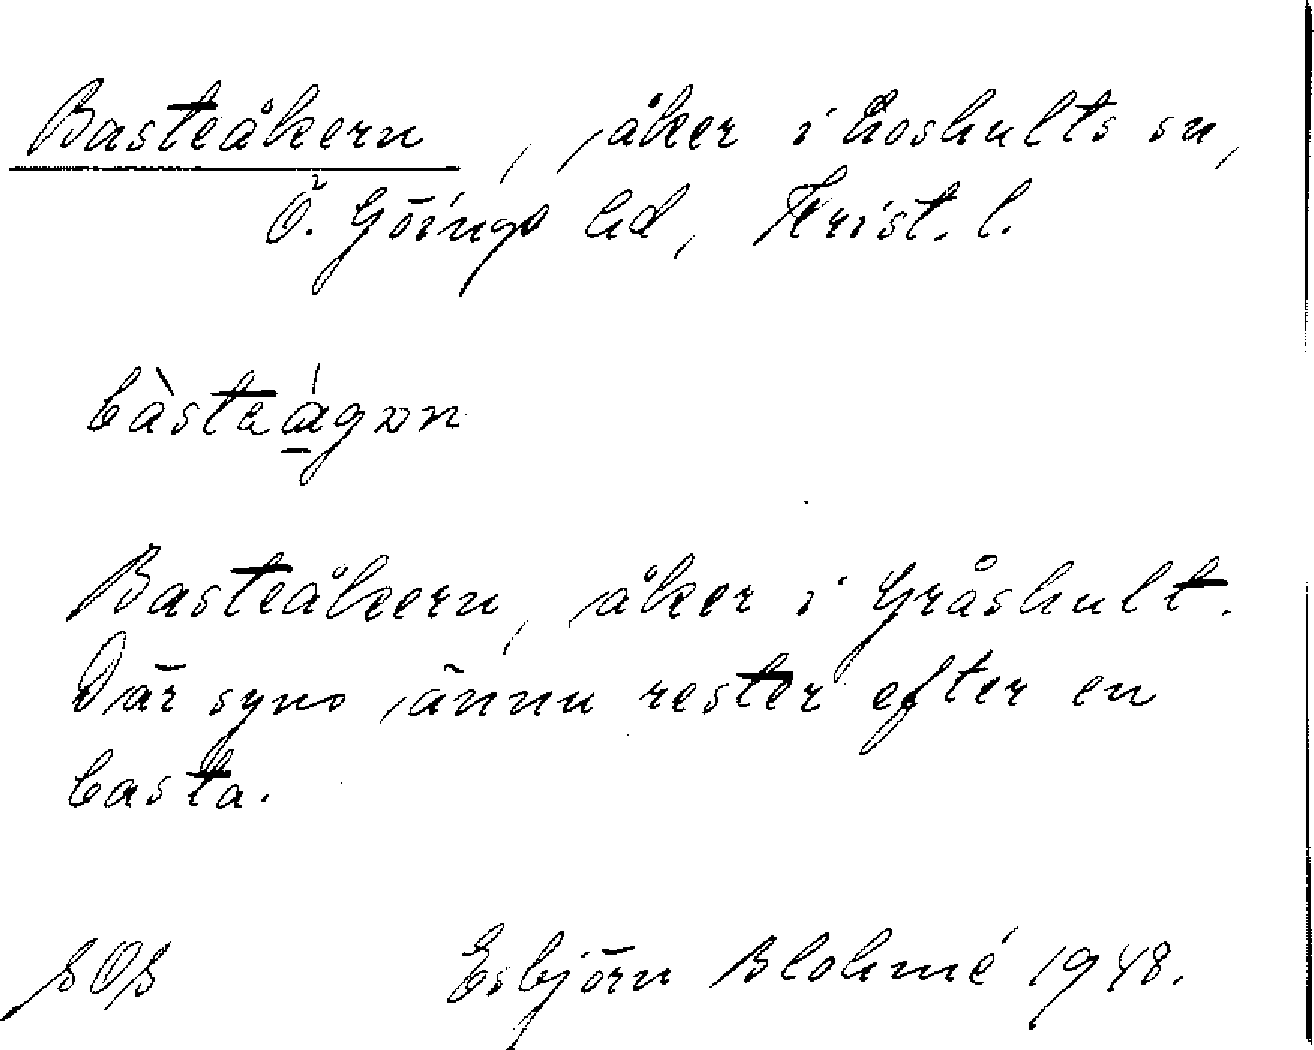 Basteåkern, åker i Loshults sn,
Ö. Göinge hd, Krist. l.
bàsteágon
Basteåkern, åker i Gråshult.
Där syns ännu rester efter en
basta.
SOS Esbjörn Blohmé 1948.